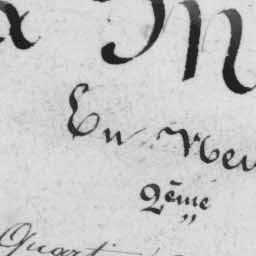 M
En Mer
2ème
Quart